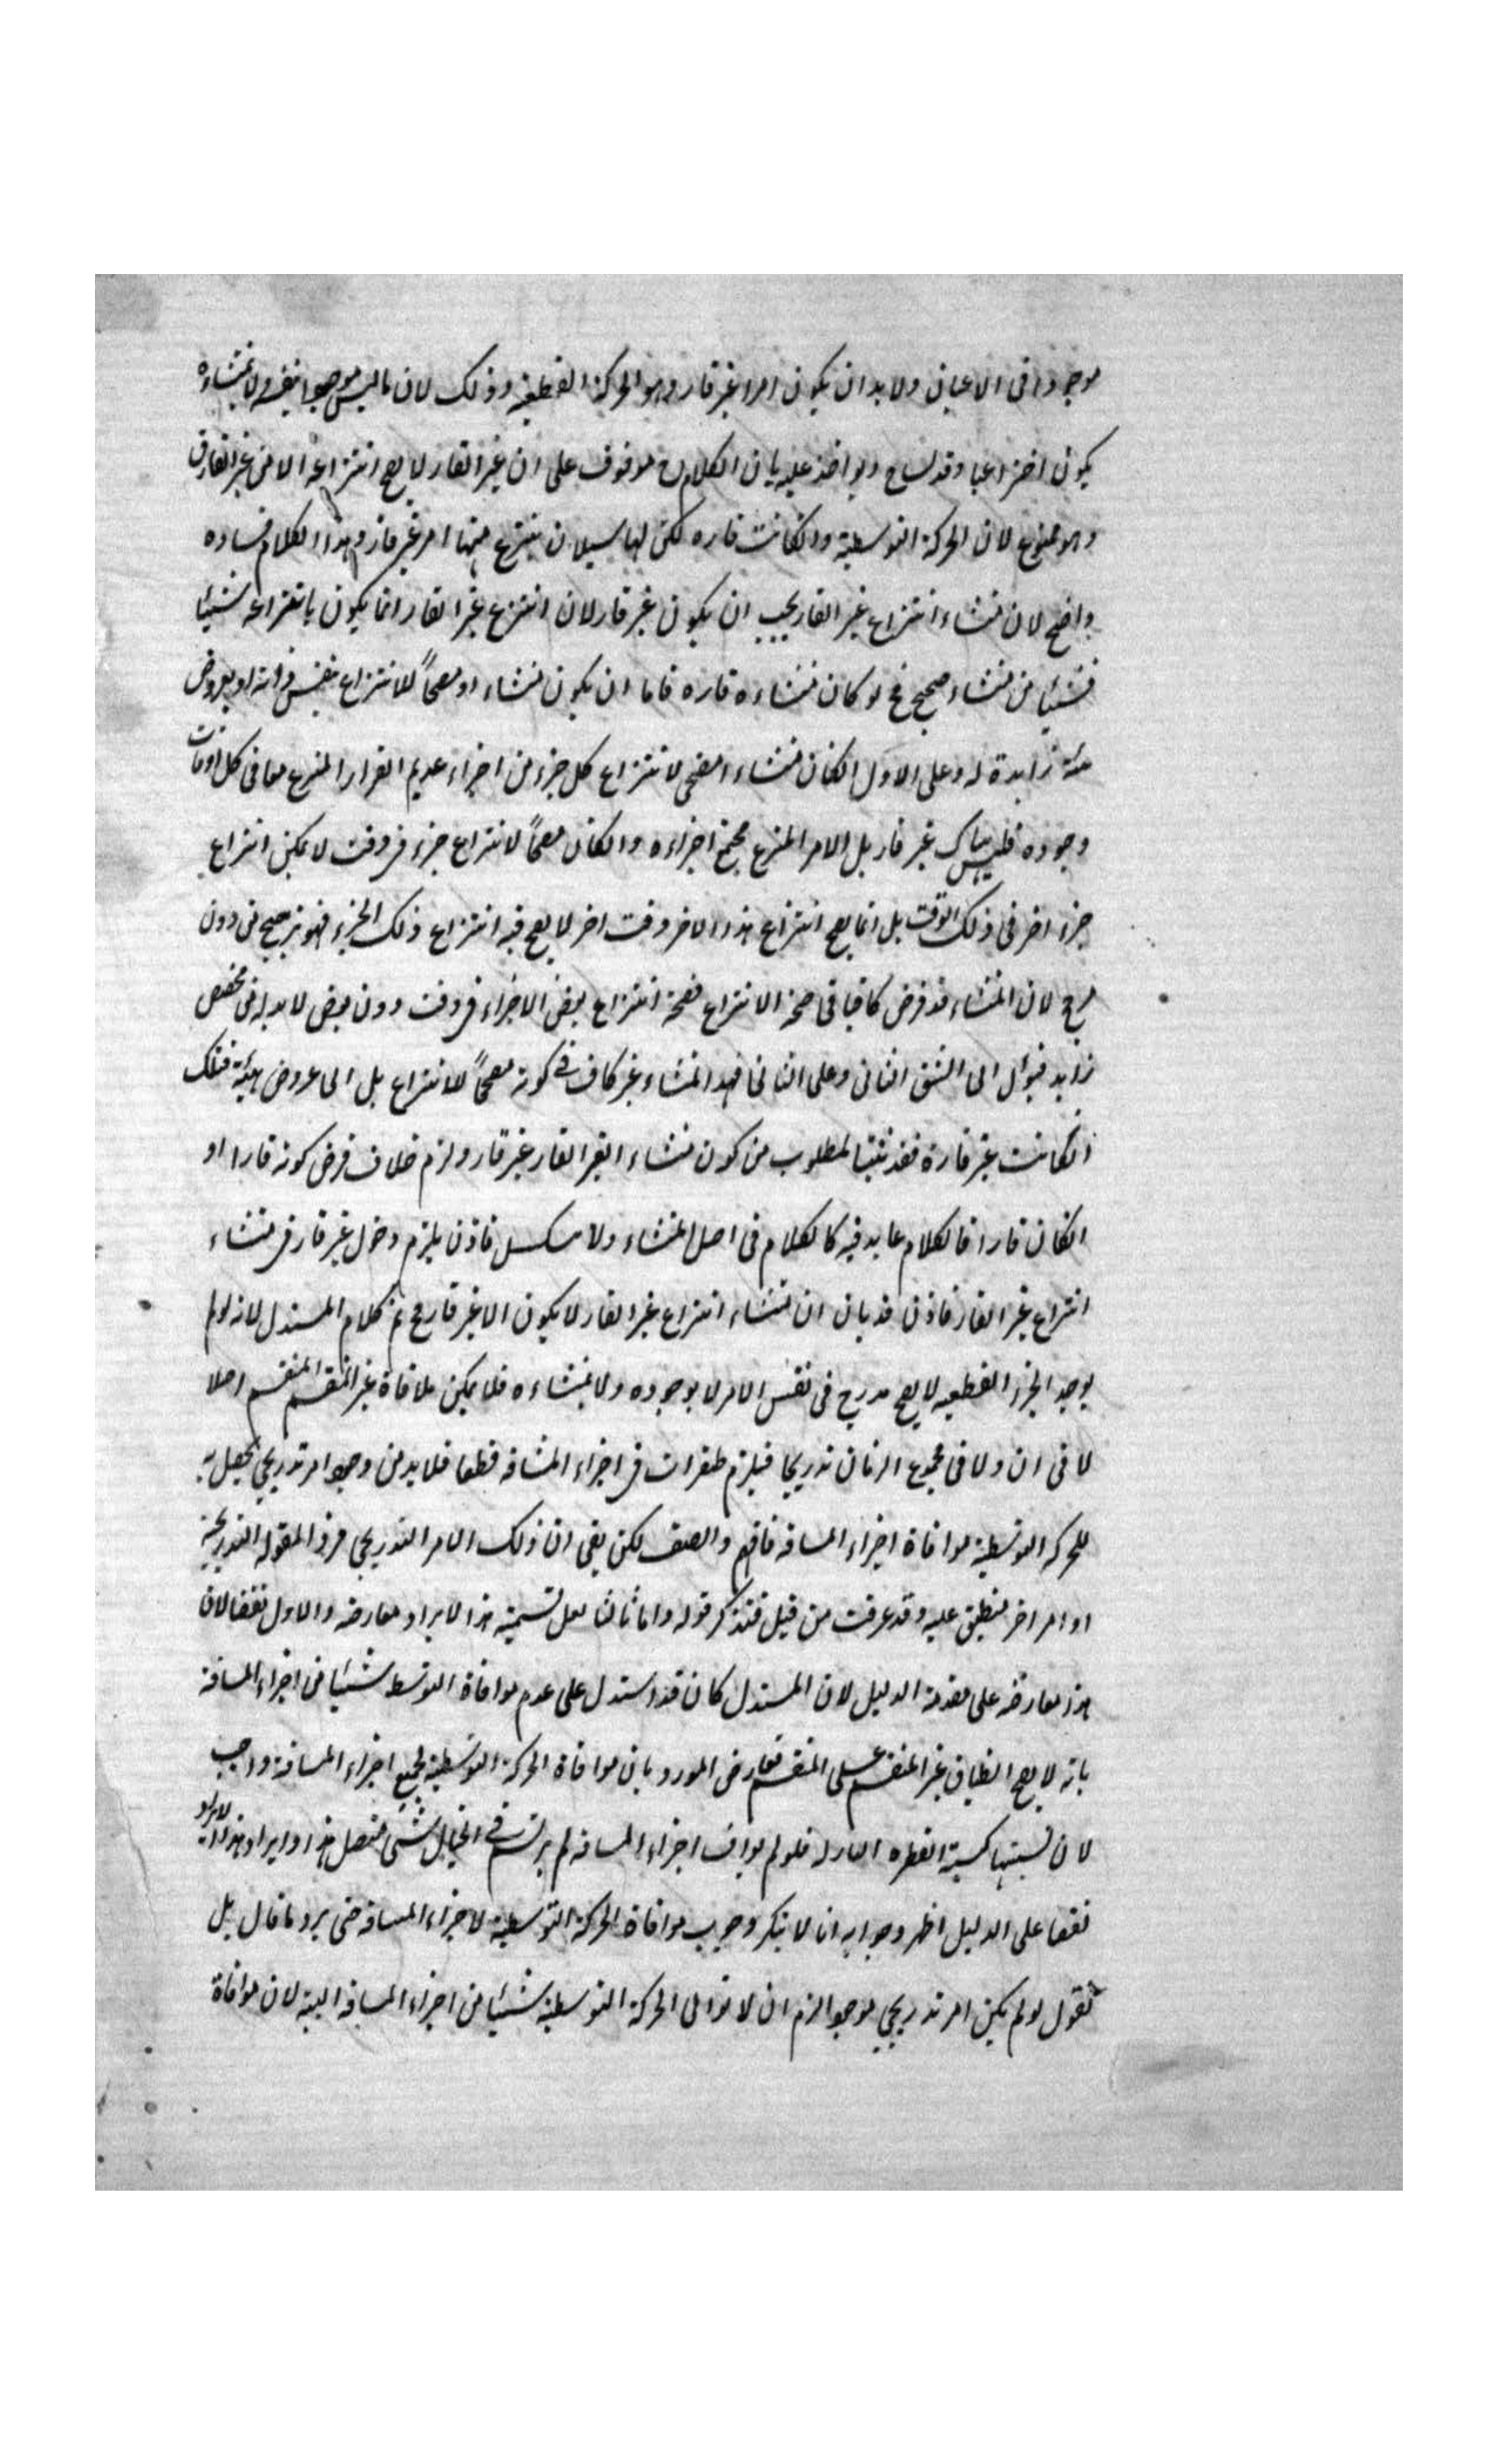 موجودا فى الاعيان ولا بد ان يكون امرا غير قار وهو الحركة القطعية وذلك لان ما ليس موجودا بنفسه ولا بمنشاءه
يكون اختراعيا وقد لساح ويواخذ عليه بان الكلام ح موقوف على ان غير القار لا يصح انتزاعه الا من غير القار
وهو ممنوع لان الحركة التوسطية وانكانت قاره لكن لها سيلان ينتزع منها امر غير قار وهذا الكلام فساده
واضح لان منشاء انتزاع غير القار يجب ان يكون غير قار لان انتزاع غير القار انما يكون بانتزاعه شيئا
فشيئا من منشاء صحيح فح لو كان منشاءه قاره فاما ان يكون منشاء او مصححاً للانتزاع بنفس ذاته او بعروض
هيئة زايدة له وعلى الاول انكان منشاء مصححا لانتزاع كل جزء من اجزاء عديم القرار المنتزع معا فى كل اوقات
وجوده فليس هناك غير قار بل الامر المنتزع مجتمع اجزاءه وانكان مصححاً لانتزاع جزء فى وقت لا يمكن انتزاع
جزء اخر فى ذلك الوقت بل انما يصح انتزاع هذا الاخر وقت اخر لا يصح فيه انتزاع ذلك الجزء فهو ترجيح من دون
مرجح لان المنشاء قد فرض كافيا فى صحة الانتزاع فصحة انتزاع بعض الاجزاء فى وقت دون بعض لا بد له من مخصص
زايد فيؤل الى الشق الثانى وعلى الثانى فهذا المنشاء غير كاف فى كونه مصححاً للانتزاع بل الى عروض هيئة فتلك
انكانت غير قارة فقد ثبت المطلوب من كون منشاء الغير القار غير قار ولزم خلاف فرض كونه قارا او
انكان قارا فالكلام عايد فيه كالكلام فى اصل المنشاء ولا يتسلسل فاذن يلزم دخول غير قار فى منشاء
انتزاع غير القار فاذن قد بان ان منشاء انتزاع غير القار لا يكون الا غير قار فح تم كلام المستدل لانه لو لم
يوجد الجزء القطعيه لا يصح تدريج فى نفس الامر لا بوجوده ولا بمنشاءه فلا يمكن ملاقاة غير المنقسم المنقسم اصلا
لا فى ان ولا فى مجموع الزمان تدريجا فيلزم طفرات فى اجزاء المسافه قطعا فلا بد من وجود امر تدريجى يحصل به
للحركه التوسطية موافاة اجزاء المسافه فافهم وانصف لكن بقى ان ذلك الامر التدريجى فرد المقوله التدريجية
او امر اخر منطبق عليه وقد عرفت من قبل فتذكر قوله واما ثالثا لعل تسمية هذا الايراد معارضه والاول نقضا لان
هذا معارضه على مقدمة الدليل لان المستدل كان قد استدل على عدم موافاة التوسط شيئا من اجزاء المسافة
بانه لا يصح انطباق غير المنقسم على المنقسم فعارض المورد بان موافاة الحركة التوسطية لجميع اجزاء المسافة واجب
لان نسبتها كنسبة القطره النازله فلو لم يواف اجزاء المسافه لم يرتسم فى الخيال شئ متصل هذا وايراد هذا الايراد
نقضا على الدليل اظهر وجوابه انا لا ننكر وجوب موافاة الحركة التوسطية لاجزاء المسافه حتى يرد ما قال بل
نقول لو لم يكن امر تدريجى موجودا لزم ان لا توافى الحركة التوسطية شيئا من اجزاء المسافه البتة لان موافاة